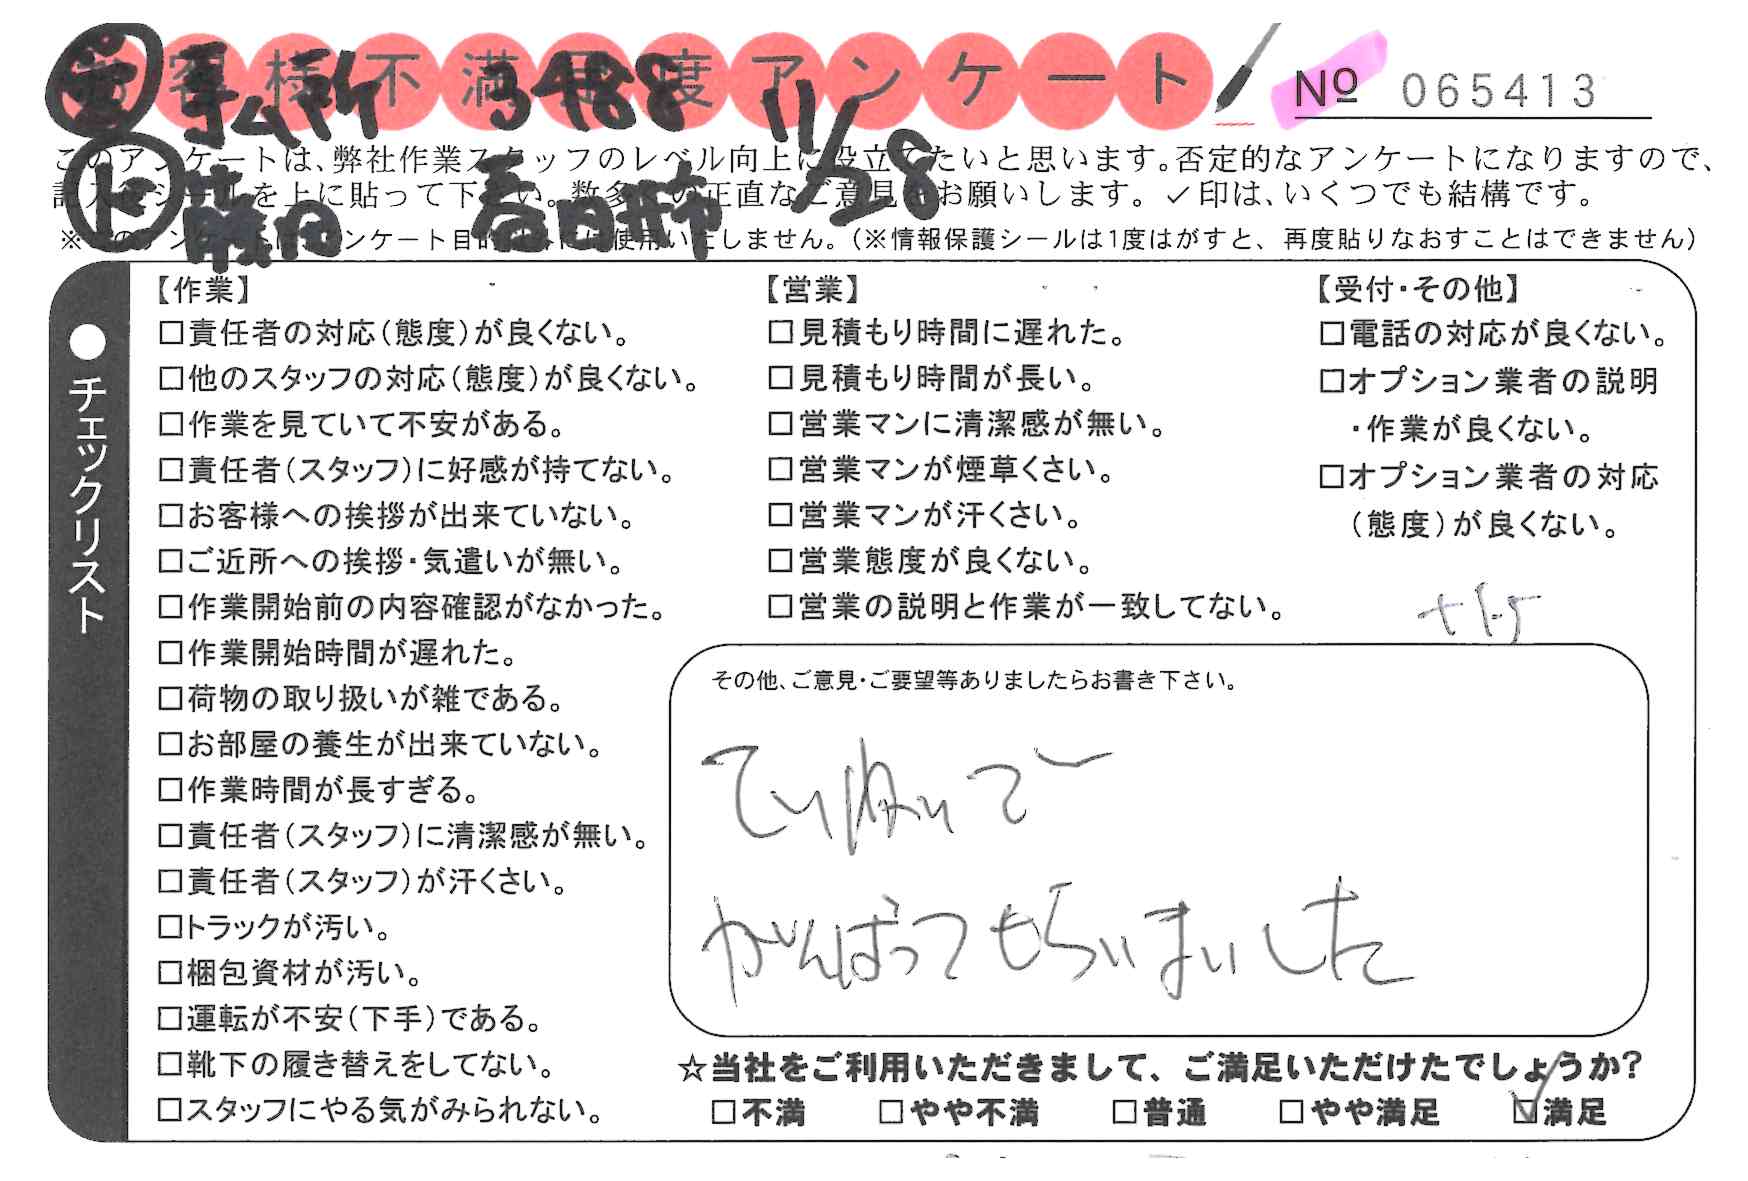 お客様不満足度アンケート
No 065413
3488 11/28
このアンケートは、弊社作業スタッフのレベル向上に役立てたいと思います。否定的なアンケートになりますので、
記入後シールを上に貼って下さい。数多くの正直なご意見をお願いします。✓印は、いくつでも結構です。
春日井市
※このアンケートはアンケート目的以外には使用いたしません。(※情報保護シールは1度はがすと、再度貼りなおすことはできません)
●チェックリスト
【作業】
□責任者の対応(態度)が良くない。
□他のスタッフの対応(態度)が良くない。
□作業を見ていて不安がある。
□責任者(スタッフ)に好感が持てない。
□お客様への挨拶が出来ていない。
□ご近所への挨拶・気遣いが無い。
□作業開始前の内容確認がなかった。
□作業開始時間が遅れた。
□荷物の取り扱いが雑である。
□お部屋の養生が出来ていない。
□作業時間が長すぎる。
□責任者(スタッフ)に清潔感が無い。
□責任者(スタッフ)が汗くさい。
□トラックが汚い。
□梱包資材が汚い。
□運転が不安(下手)である。
□靴下の履き替えをしてない。
□スタッフにやる気がみられない。
【営業】
□見積もり時間に遅れた。
□見積もり時間が長い。
□営業マンに清潔感が無い。
□営業マンが煙草くさい。
□営業マンが汗くさい。
□営業態度が良くない。
□営業の説明と作業が一致してない。
【受付・その他】
□電話の対応が良くない。
□オプション業者の説明
・作業が良くない。
□オプション業者の対応
(態度)が良くない。
その他、ご意見・ご要望等ありましたらお書き下さい。
ていねいで
がんばってもらいまいした
☆当社をご利用いただきまして、ご満足いただけたでしょうか?
□不満 □やや不満 □普通 □やや満足 ☑満足